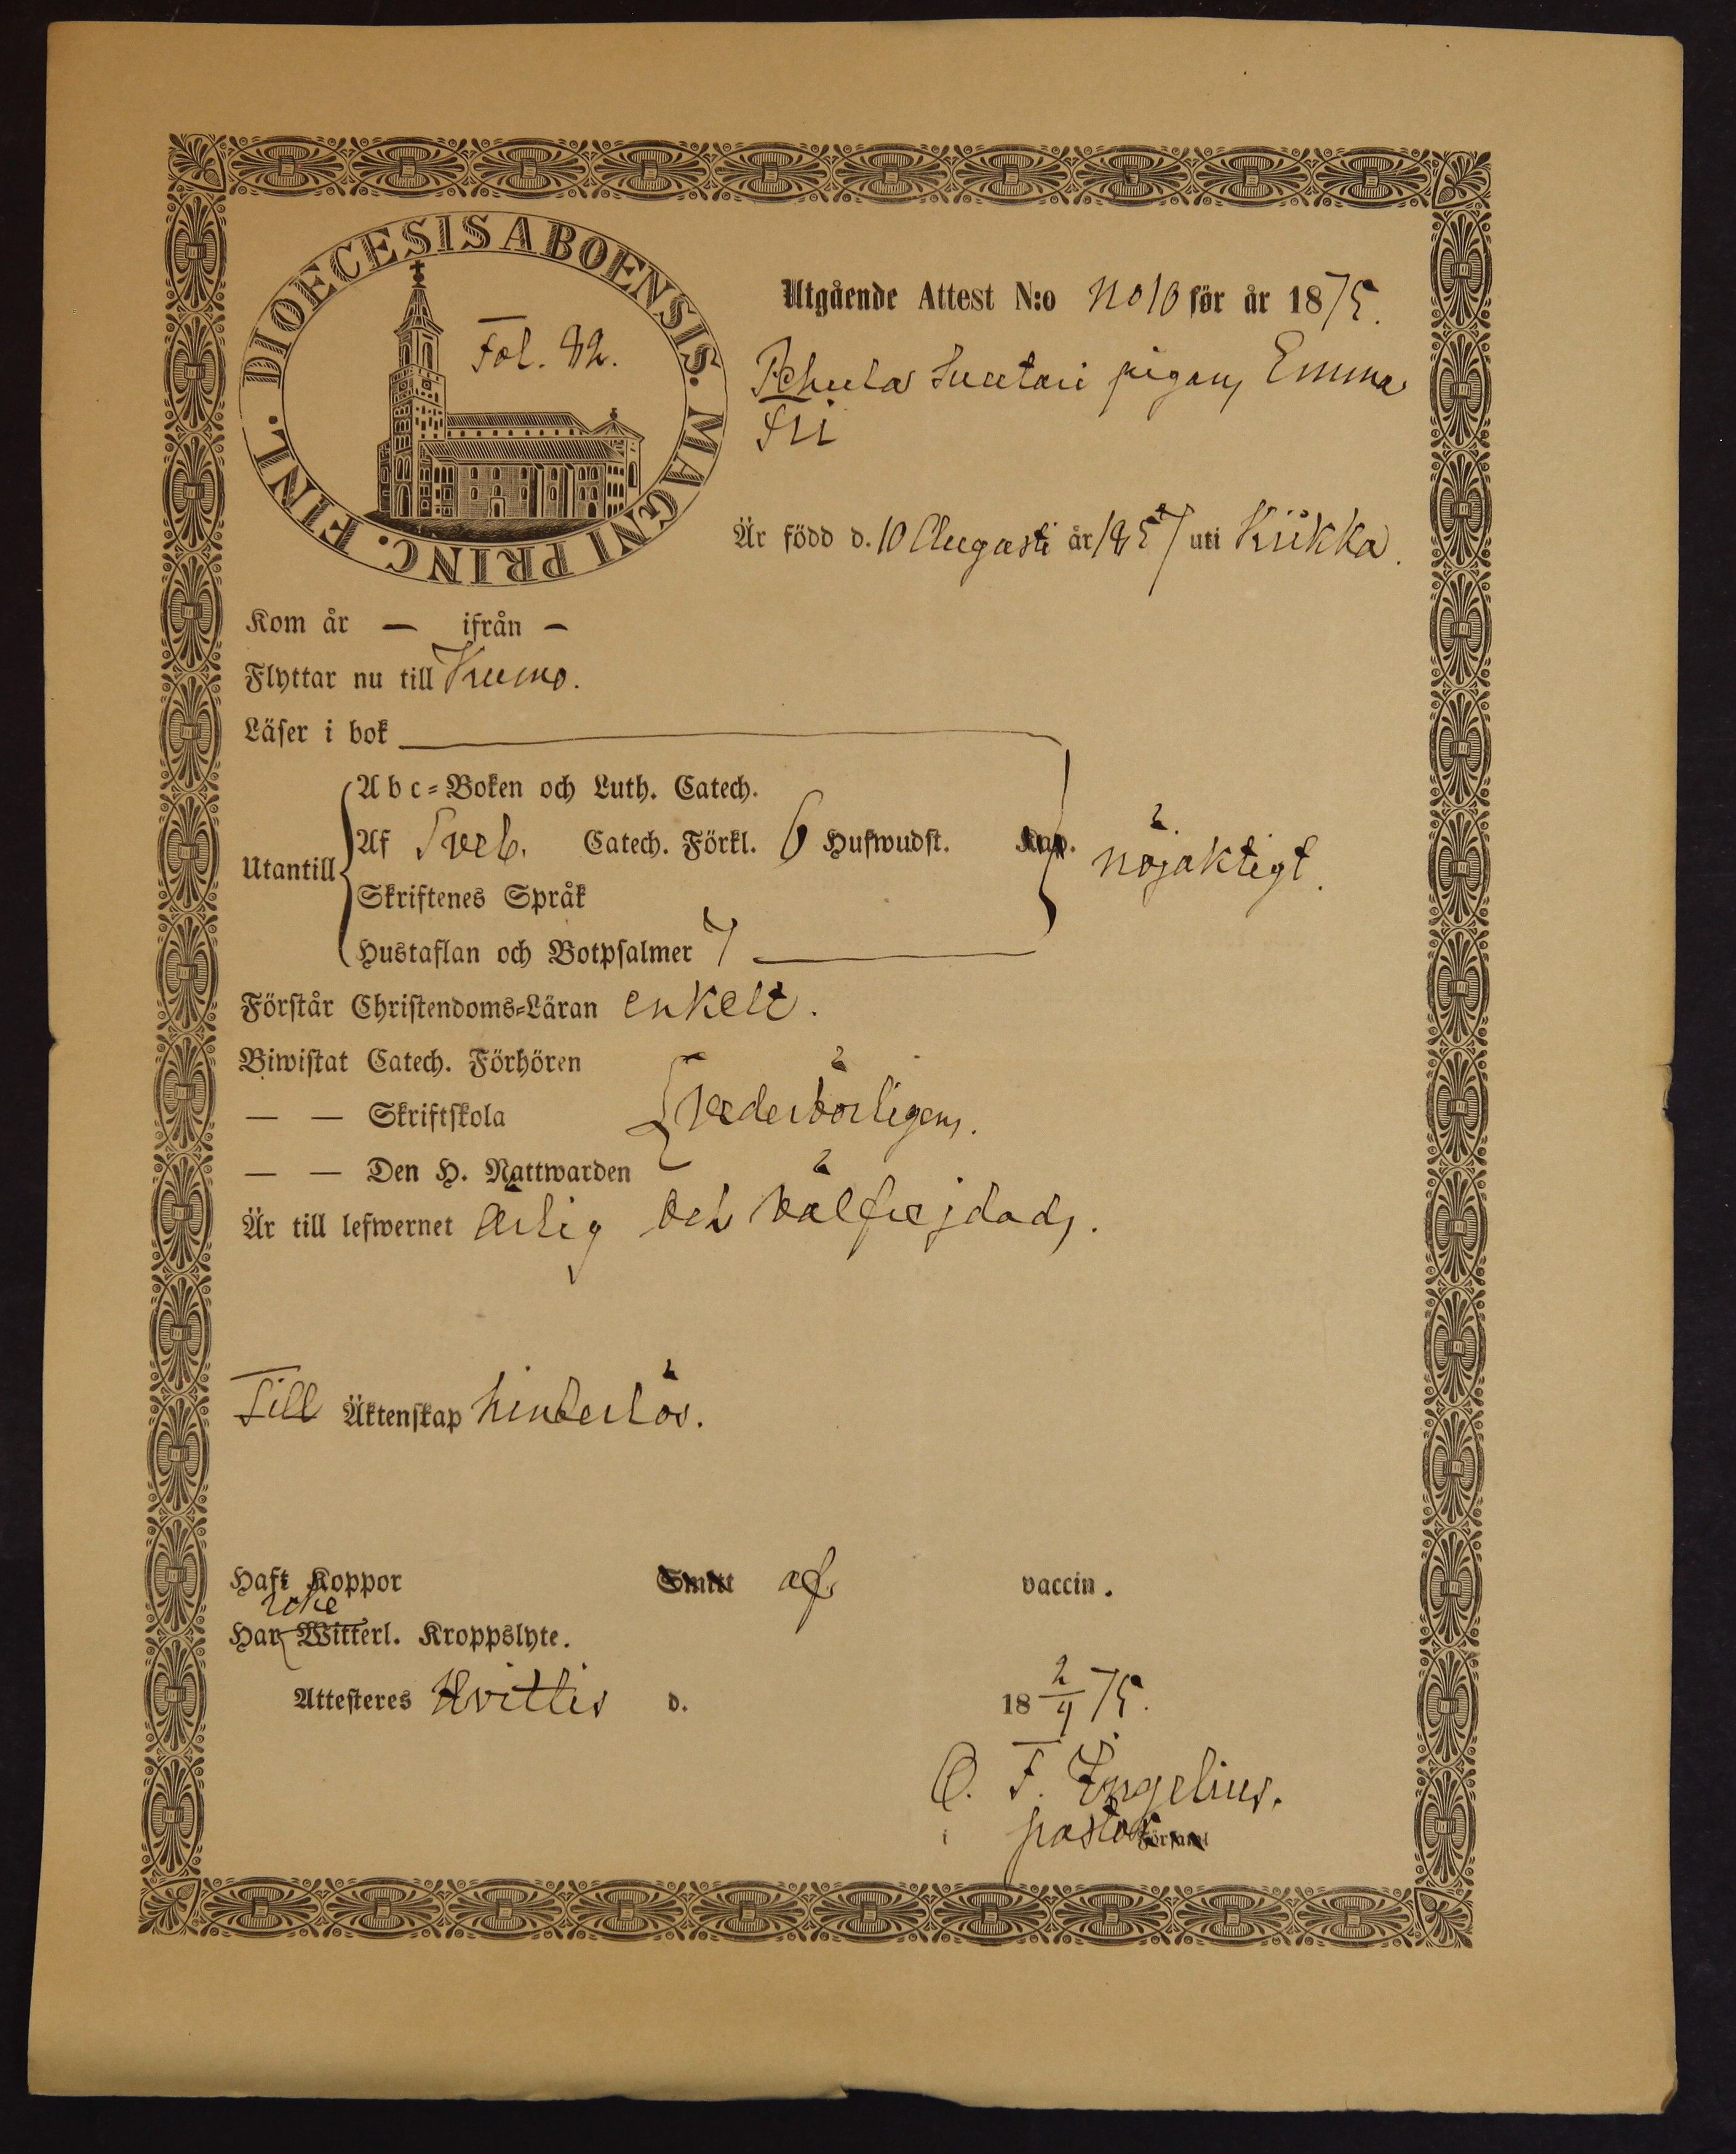 DIOECESIS ABOENSIS. MAGNI PRINC. FINL.
Fol. 82.
Utgående Attest N:o No 10 för år 1875.
pigan Emma
Fri
Är född d. 10 Augusti år 1857 uti Kiikka.
Kom år — ifrån —
Flyttar nu till Kumo.
Läser i bok
Utantill
Abc=Boken och Luth. Catech.
Af Sveb. Catech. Förkl. 6 Hufwudst. Kap.
nöjaktigt.
Skriftenes Språk
Hustaflan och Botpsalmer 7
Förstår Christendoms=Läran enkelt.
Biwistat Catech. Förhören
— — Skriftskola
vederbörligen.
— — Den H. Nattwarden
Är till lefwernet ärlig och välfrejdad.
Till Äktenskap hinderlös.
Haft Koppor Smitt af vaccin.
icke
Har Witterl. Kroppslyte.
Attesteres Hvittis d. 18 2/4 75.
C. F. Engelius.
i pastor Församl